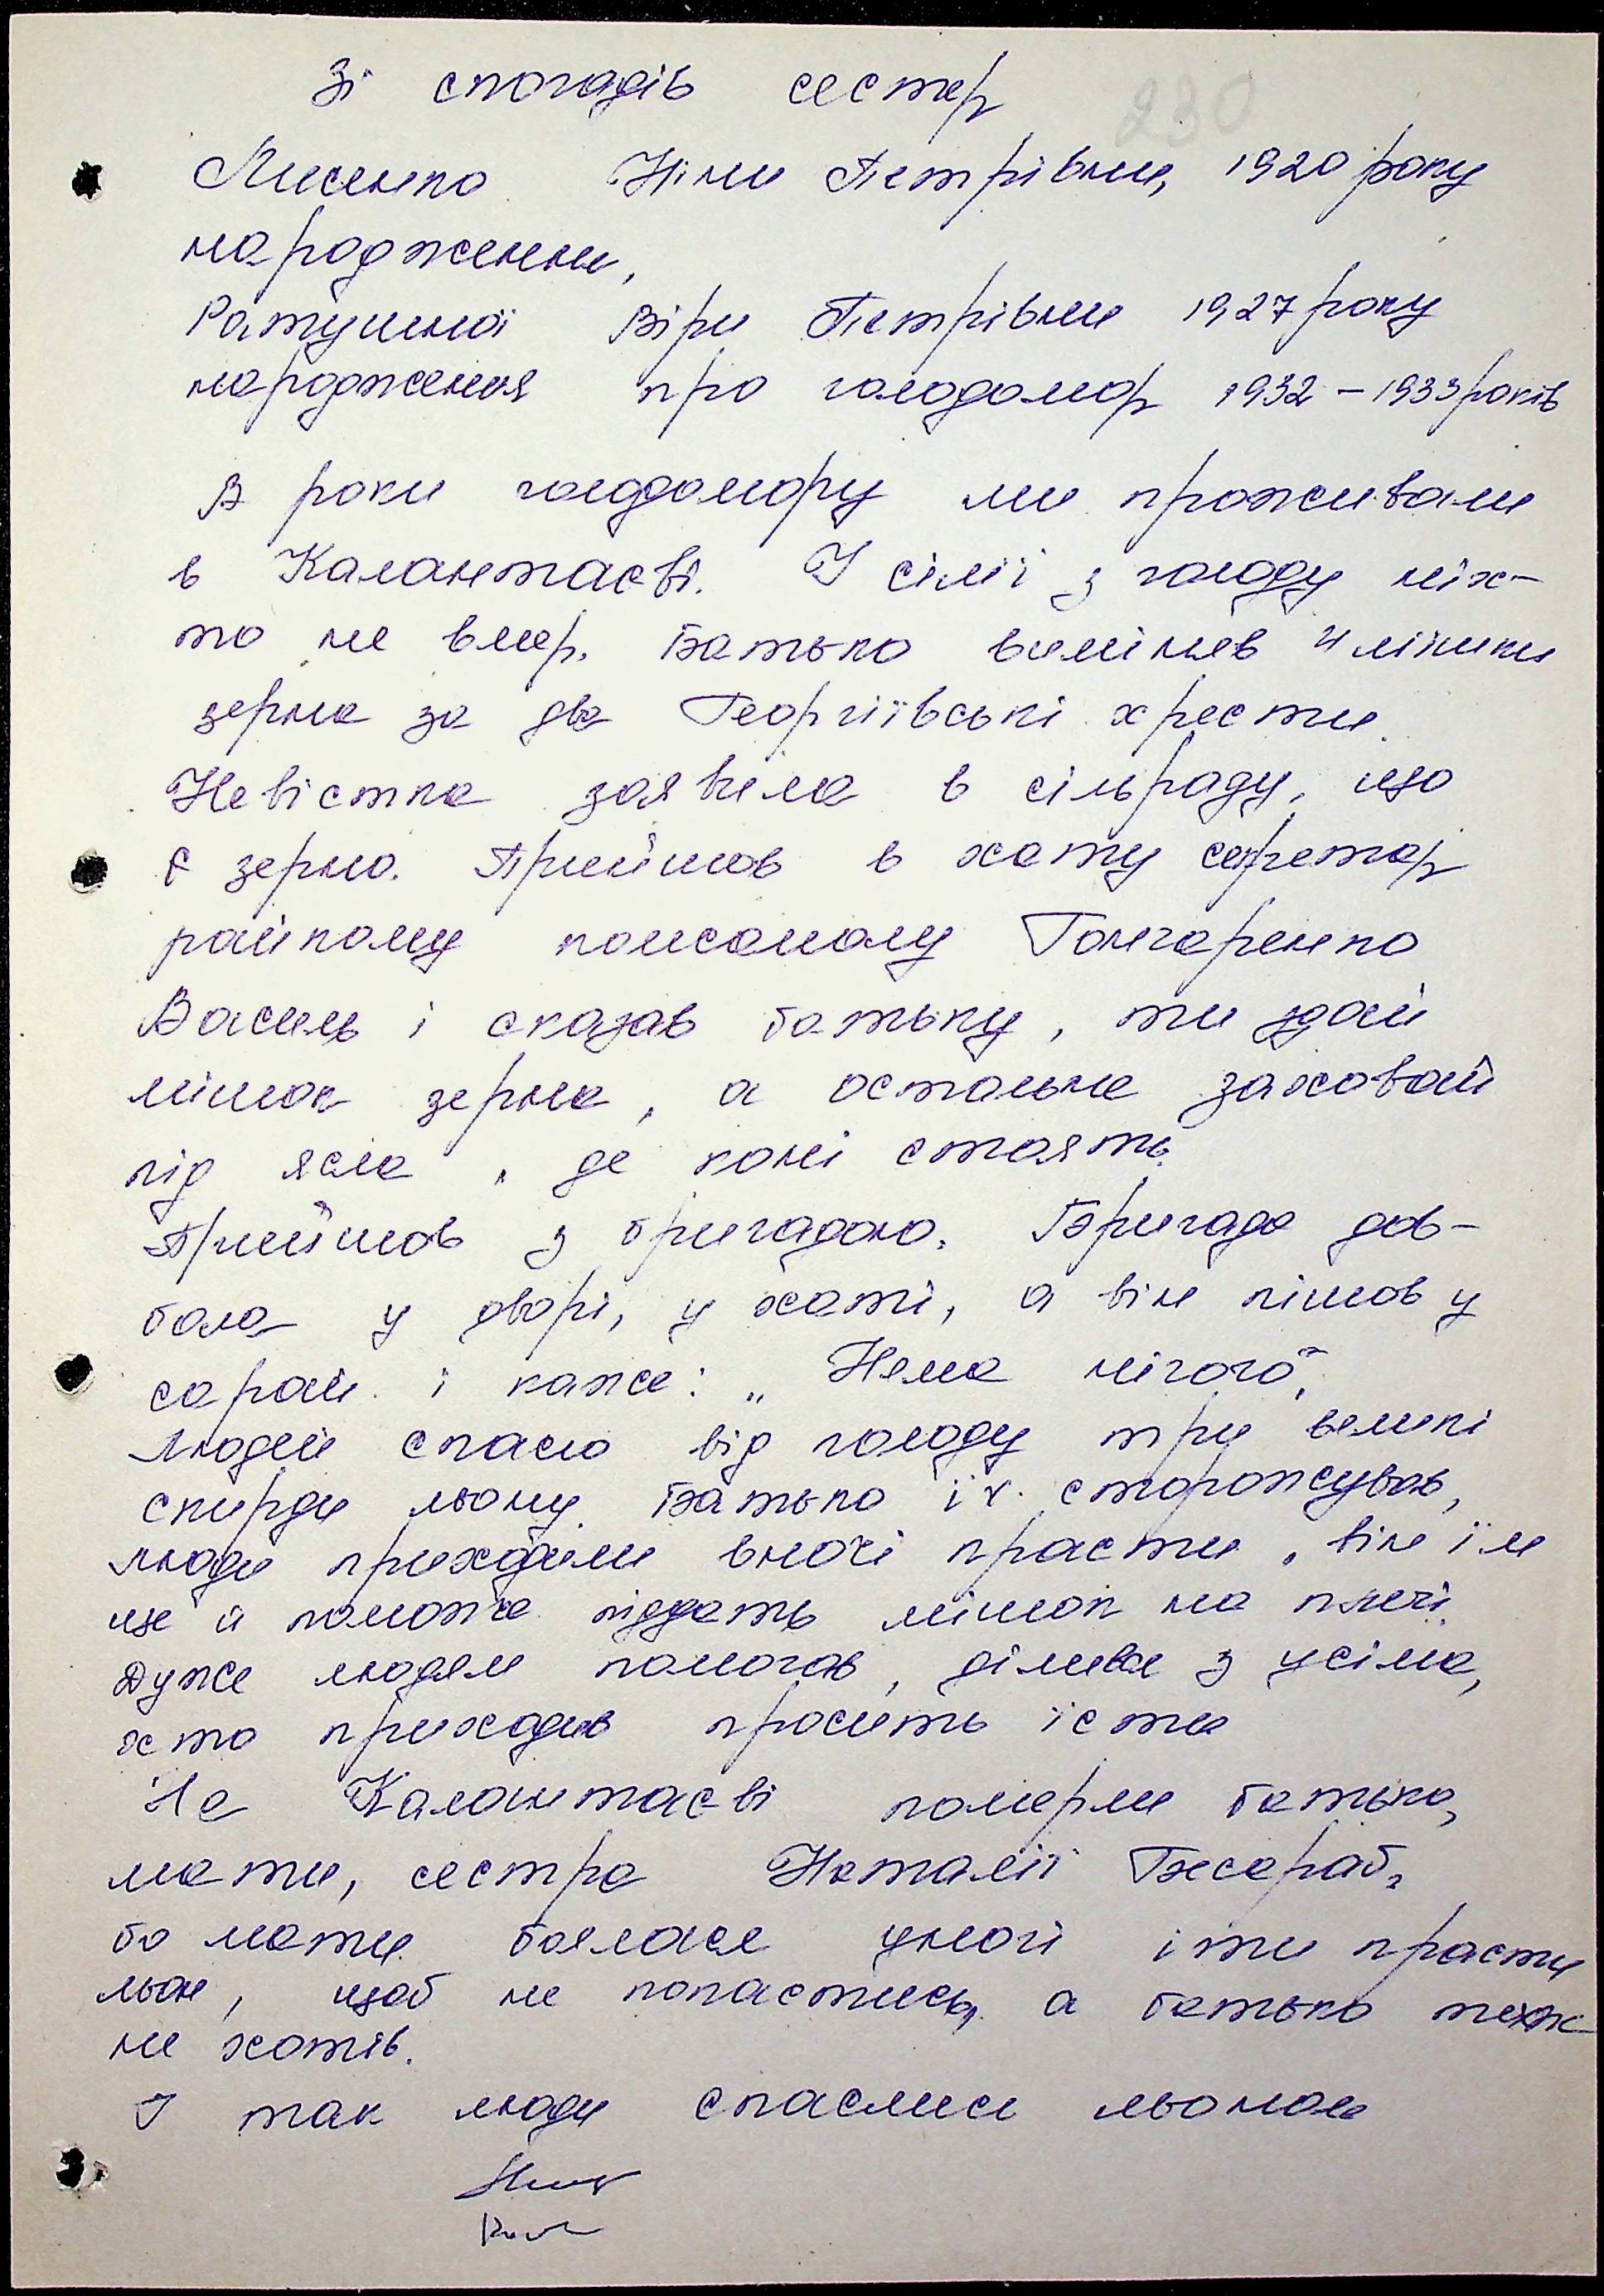 Зі спогадів сестер
230
Лисенко Ніни Петрівни, 1920 року
народження,
Ратушної Віри Петрівни 1927 року
народження про голодомор 1932 – 1933 років
В роки голодомору ми проживали
в Калантаєві. У сім'ї з голоду ніх-
то не вмер. Батько виміняв 4 мішки
зерна за два Георгіївські хрести.
Невістка заявила в сільраду, що
є зерно. Прийшов в хату секретар
райкому комсомолу Гончаренко
Василь і сказав батьку, ти здай
мішок зерна, а остальне заховай
під ясла, де коні стоять.
Прийшов з бригадою. Бригада дов-
бала у дворі, у хаті, а він пішов у
сарай і каже: „Нема нічого".
Людей спасло від голоду три великі
скирди льону. Батько їх сторожував,
люди приходили вночі красти, він їм
ще й поможе піддать мішок на плечі.
Дуже людям помогав, ділився з усіма,
хто приходив просить їсти
На Калантаєві померли батько,
мати, сестра Наталії Бжсараб,
бо мати боялася уночі іти красти
льон, щоб не попастись, а батько теж
не хотів.
І так люди спаслися льоном